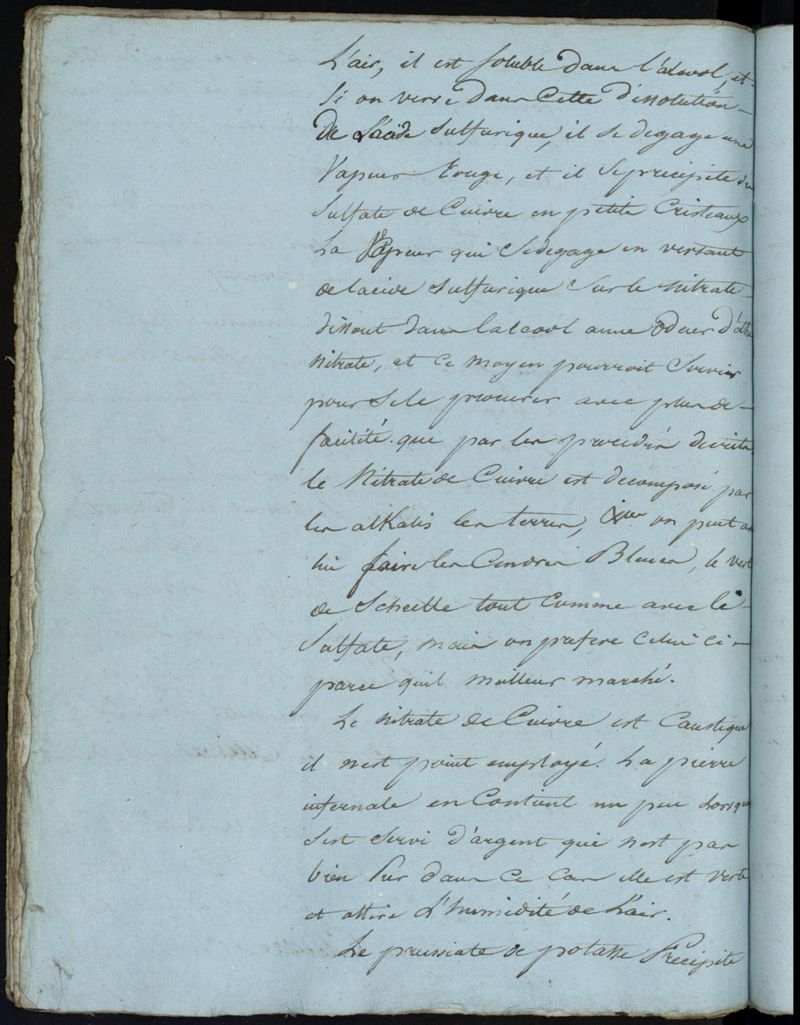 L'air, il est soluble dans l'alcool, et
si on verse dans cette dissolution
de L'acide sulfurique, il se degage une
vapeur rouge, et il se precipite du
sulfate de Cuivre en petits Cristeaux
La Vapeur qui se degage en versant
de lacide sulfurique sur le nitrate
dissout dans lalcool a une oduer d'éther
nitrate, et ce moyen pourroit servir
pour se le procurer avec plus de
facilité que par les procédés decrits
le Nitrate de Cuivre est decomposé par
les alkalis les terres, on peut en
lui faire les Cendres Bleues, le vert
de Scheelle tout comme avec le
Sulfate, mais on prefere celui ci
parce quil meilleur marché.
Le nitrate de Cuivre est Caustique
il nest point employé. La pierre
infernale en Contient un peu Lorsque
sest servi d'argent qui nest pas
bien Pur dans ce cas elle est verte
et attire L'humidité de L'air.
Le prussiate de potasse Précipite